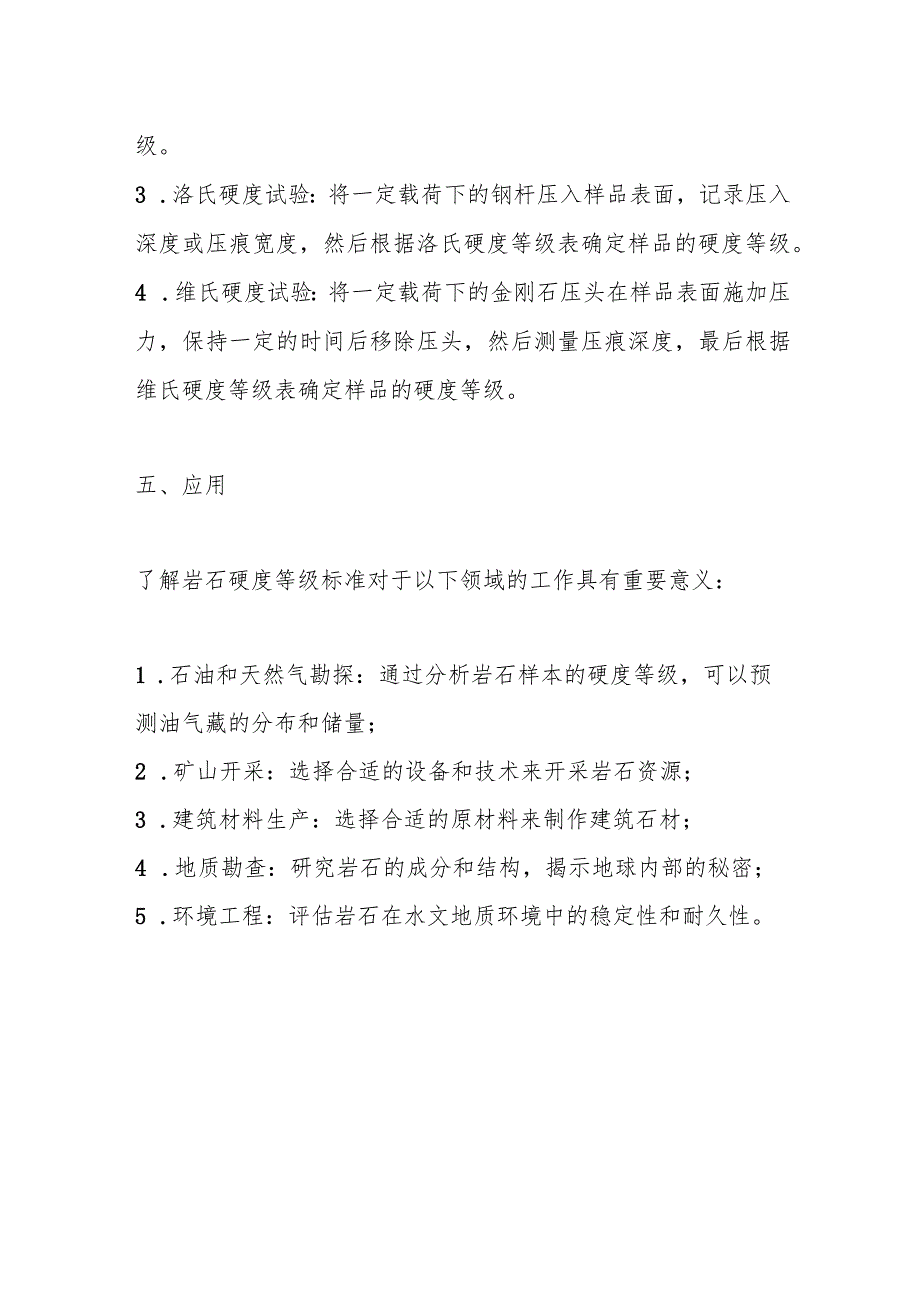 级。
3 .洛氏硬度试验：将一定载荷下的钢杆压入样品表面，记录压入
深度或压痕宽度，然后根据洛氏硬度等级表确定样品的硬度等级。
4 .维氏硬度试验：将一定载荷下的金刚石压头在样品表面施加压
力，保持一定的时间后移除压头，然后测量压痕深度，最后根据
维氏硬度等级表确定样品的硬度等级。
五、应用
了解岩石硬度等级标准对于以下领域的工作具有重要意义：
1 .石油和天然气勘探：通过分析岩石样本的硬度等级，可以预
测油气藏的分布和储量；
2 .矿山开采：选择合适的设备和技术来开采岩石资源；
3 .建筑材料生产：选择合适的原材料来制作建筑石材；
4 .地质勘查：研究岩石的成分和结构，揭示地球内部的秘密；
5 .环境工程：评估岩石在水文地质环境中的稳定性和耐久性。